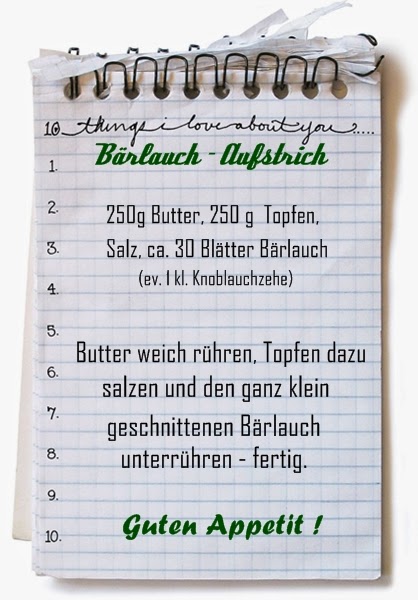 10 things i love about you.....
Bärlauch - Aufstrich
1.
2.
250g Butter, 250 g Topfen,
3.
Salz, ca. 30 Blätter Bärlauch
(ev. 1 kl. Knoblauchzehe)
4.
5.
Butter weich rühren, Topfen dazu
6.
salzen und den ganz klein
7.
geschnittenen Bärlauch
8.
unterrühren - fertig.
9.
Guten Appetit !
10.